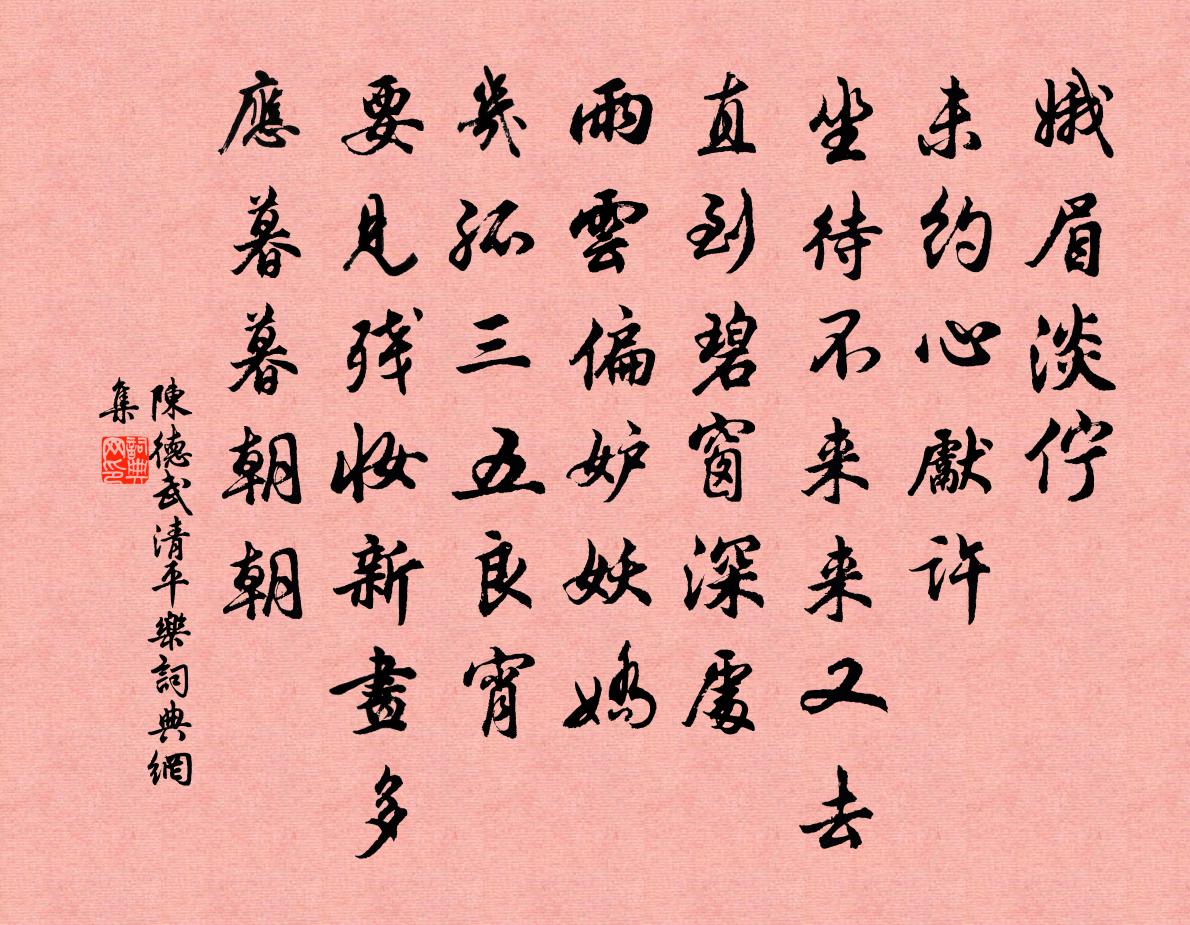 娥眉淡佇
未約心獻許
坐待不来来又去
直到碧窗深處
雨雲偏妒妖嬌
幾孤三五良宵
要見残妆新畫多
應暮暮朝朝
陳德武清平樂詞典網
集
詞典网印